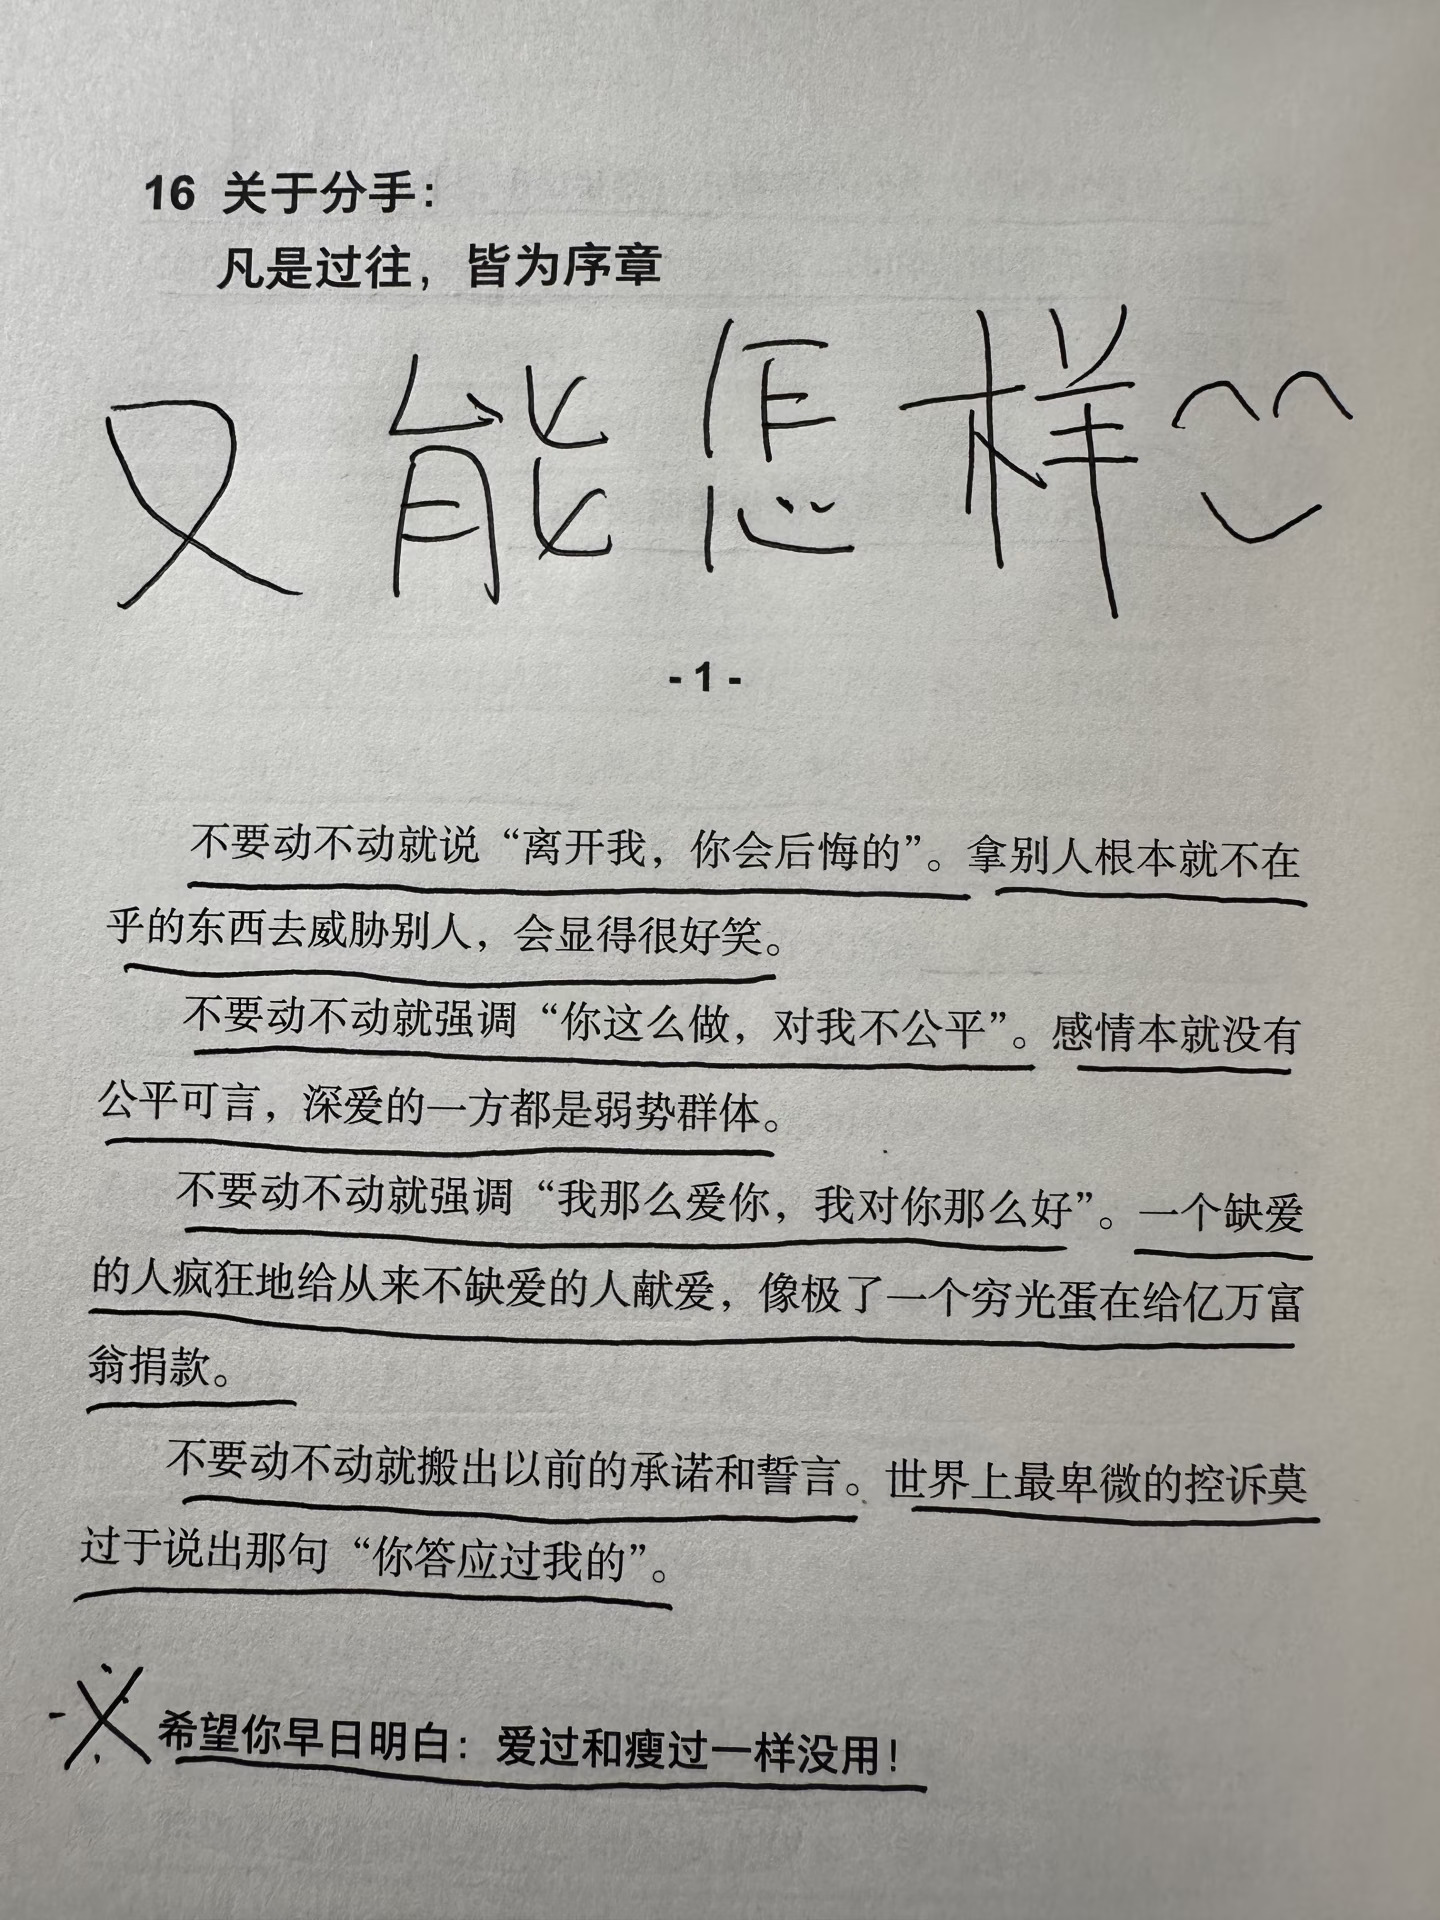 16 关于分手：
凡是过往，皆为序章
又能怎样
- 1 -
不要动不动就说“离开我，你会后悔的”。拿别人根本就不在
乎的东西去威胁别人，会显得很好笑。
不要动不动就强调“你这么做，对我不公平”。感情本就没有
公平可言，深爱的一方都是弱势群体。
不要动不动就强调“我那么爱你，我对你那么好”。一个缺爱
的人疯狂地给从来不缺爱的人献爱，像极了一个穷光蛋在给亿万富
翁捐款。
不要动不动就搬出以前的承诺和誓言。世界上最卑微的控诉莫
过于说出那句“你答应过我的”。
希望你早日明白：爱过和瘦过一样没用！